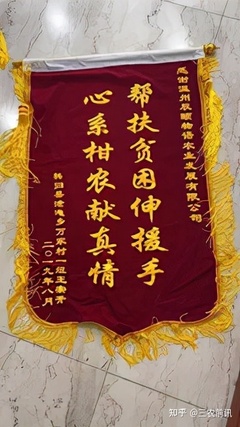 感谢温州辰颐物语农业发展有限公司
帮扶贫困伸援手
心系柑农献真情
秭归县泄滩乡万家村一组王崇青
二〇一九年八月
知乎 @三农简讯